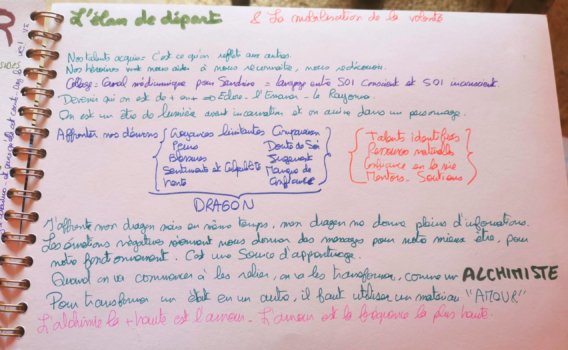 L'élan de départ & La mobilisation de la volonté
Nos talents acquis : C'est ce qu'on reflet aux autres.
Nos héros vont nous aider à nous reconnaître, nous
Collage = Canal médiumnique pour Sandrine = langage entre SOI conscient et SOI inconscient
Devenir qui on est de + en + => Eclore - l'Envoi - le Rayonn
On est un être de lumière avant incarnation et on arrive dans un personnage.
Affronter nos démons
Croyances limitantes Comparaison
Peurs Doute de Soi
Blessures Jugement
Sentiments et Culpabilité Manque de
honte Confiance
DRAGON
Talents identifiés
Ressources naturelles
Confiance en la vie
Mentors - Soutiens
J'affronte mon dragon mais en même temps, mon dragon me donne pleins d'informations.
Les émotions négatives viennent nous donner des messages pour notre mieux être, pour
notre fonctionnement. C'est une Source d'apprentissage.
Quand on va commencer à les relier, on va les transformer, comme un ALCHIMISTE
Pour transformer un état en un autre, il faut utiliser un matériau "AMOUR"
L'alchimie la + haute est l'amour. L'amour est la fréquence la plus haute.